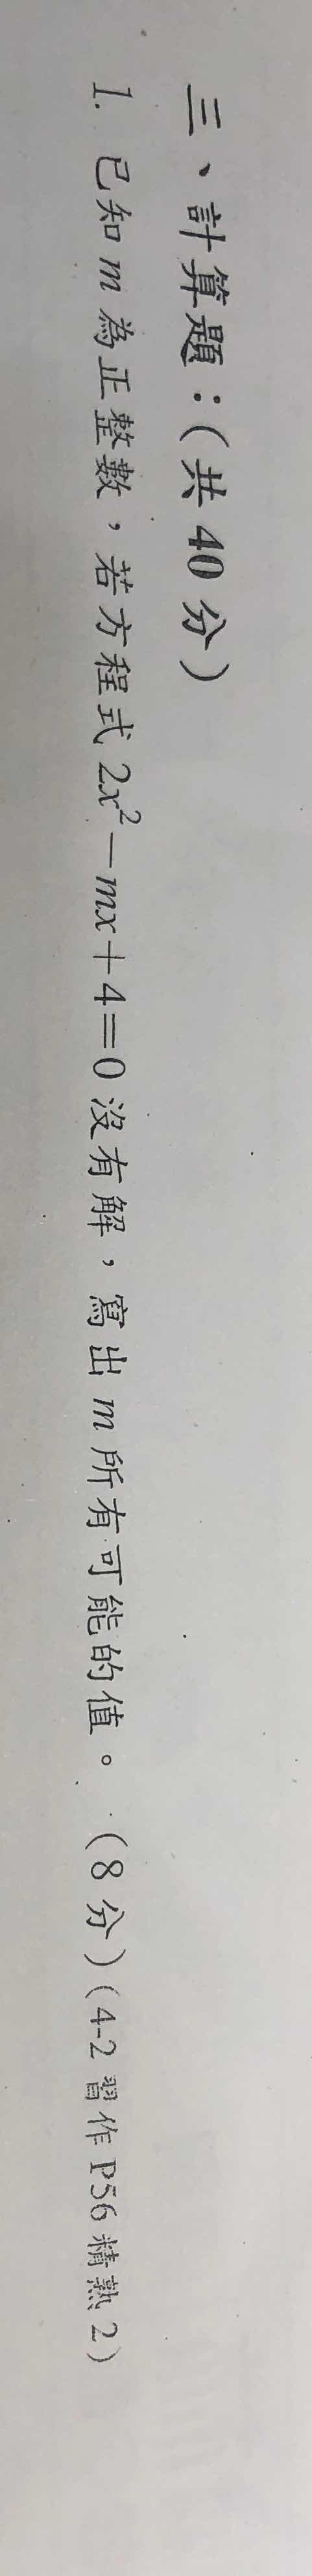 三、計算題：(共 40 分)
1. 已知 m 為正整數，若方程式 2x²－mx＋4＝0 沒有解，寫出 m 所有可能的值。 (8 分) (4-2 習作 P56 精熟 2)